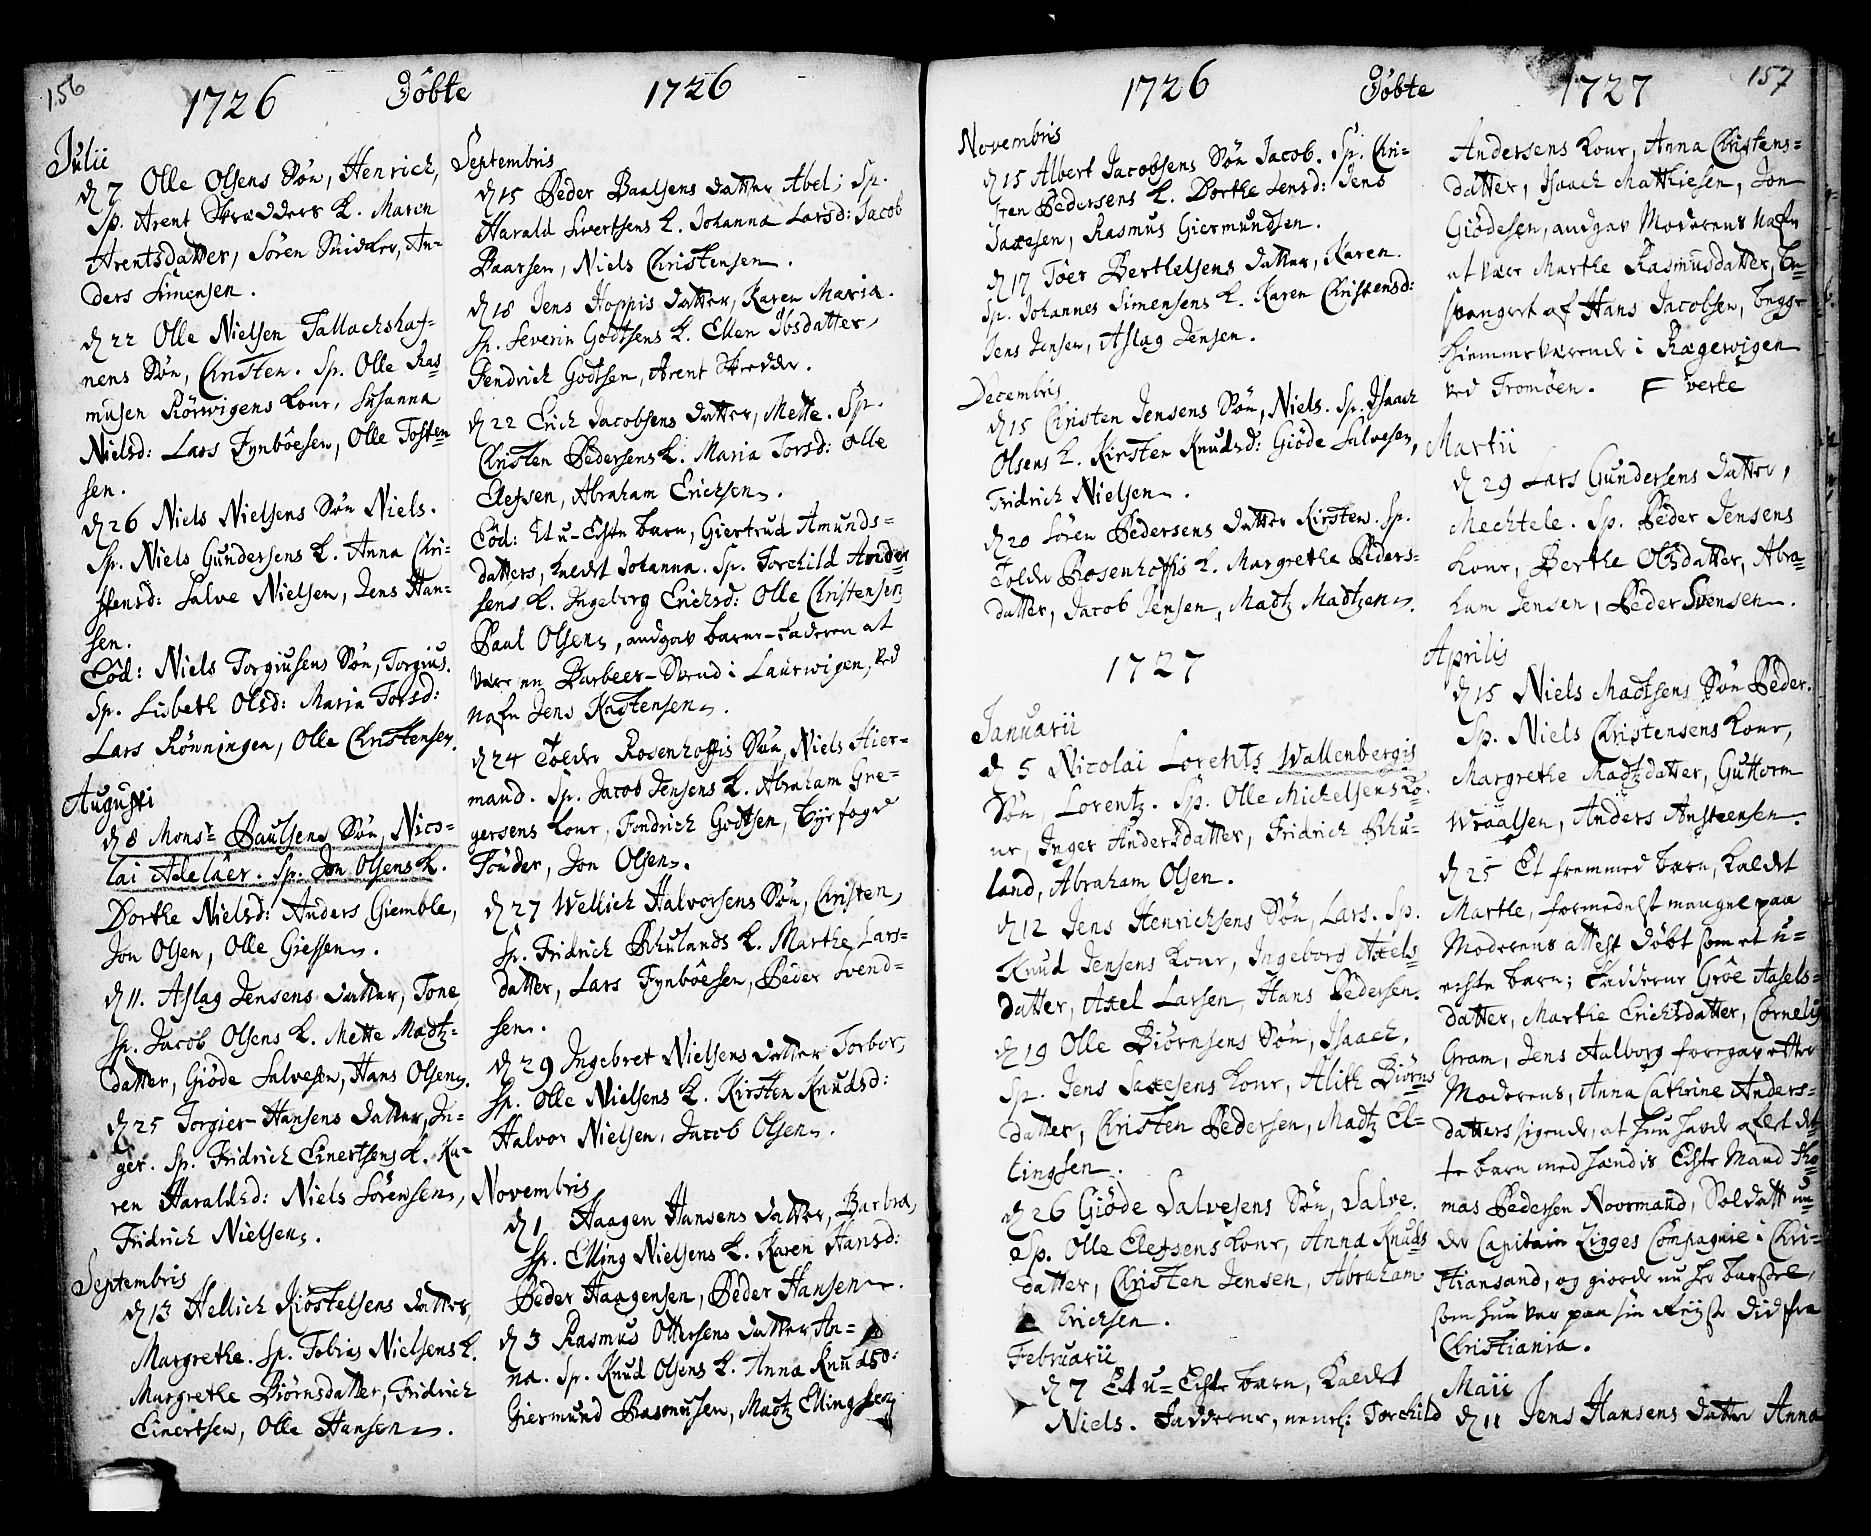 156
1726 Döbte 1726
Julii
d 7 Olle Olsens Søn, Henrich,
Sp. Arent Skrædders K. Maren
Arentsdatter, Sören Snidker, An-
ders Simensen.
d 22 Olle Nielsen Tallachshaf-
nens Søn, Christen. Sp. Olle Ras-
musen Körwigens Konr, Susanna
Nielsd: Lars Fynböesen, Olle Tosten
sen.
d 26 Niels Nielsens Søn Niels.
Sp. Niels Gundersens K. Anna Chri-
stensd: Salve Nielsen, Jens Han-
sen.
Eôd: Niels Torgiusens Søn, Torgius.
Sp. Lisbeth Olsd: Maria Torsd:
Lars Rönningen, Olle Christensen.
Augusti
d 8 Monsr Paulsens Søn, Nico-
lai Adelaer. Sp. Jon Olsens K.
Dorthe Nielsd: Anders Giemble,
Jon Olsen, Olle Giessen.
d 11. Aslag Jensens datter, Tone
Sp. Jacob Olsens K. Mette Madtz-
datter, Giöde Salvesen, Hans Olsen.
d 25 Torgier Hansens datter, In-
ger. Sp. Fridrich Einertsens K. Ka-
ren Haraldsd: Niels Sörensen,
Fridrich Nielsen.
Septembris
d 13 Hellich Kiöstelsens datter,
Margrethe. Sp. Tobias Nielsens K.
Margrethe Biörnsdatter, Fridrich
Einertsen, Olle Hansen.
Septembris
d 15 Peder Paalsens datter Abel; Sp.
Harald Sivertsens K. Johanna Larsd: Jacob
Baarsen, Niels Christensen.
d 18 Jens Hoppis datter, Karen Maria.
Sp. Severin Godtsens K. Ellen Ibsdatter,
Fendrich Godtsen, Arent Skredder.
d 22 Erich Jacobsens datter, Mette. Sp.
Christen Pedersens K. Maria Torsd: Olle
Elefsen, Abraham Erichsen.
Eôd: Et u-Echte barn, Giertrud Amunds-
datters, kaldt Johanna. Sp. Torchild Ander
sens K. Ingeborg Erichsd: Olle Christensen
Paul Olsen, andgav barne-faderen at
være en Barbeer-Svend i Laurwigen, ved
nafn Jens Kastensen.
d 24 Tolder Rosenhoffis Søn, Niels Hier-
mand. Sp. Jacob Jensens K. Abraham Gre-
gersens Konr, Fendrich Godtsen, Byefoged
Tönder, Jon Olsen.
d 27 Wellich Halvorsens Søn, Christen,
Sp. Fridrich Rhulands K. Marthe Lars-
datter, Lars Fynböesen, Peder Svend-
sen.
d 29 Ingebret Nielsens datter Torbor,
Sp. Olle Nielsens K. Kirsten Knudsd:
Halvor Nielsen, Jacob Olsen.
Novembris
d 1 Haagen Hansens datter, Barbra,
Sp. Elling Nielsens K. Karen Hansd:
Peder Haagensen, Peder Hansen.
d 3 Rasmus Ottersens datter An-
na. Sp. Knud Olsens K. Anna Knudsd:
Giermund Rasmusen, Madtz Ellingsen
1726 Döbte 1727 157
Novembris
d 15 Albert Jacobsens Søn Jacob. Sp. Chri-
sten Pedersens K. Dorthe Jensd: Jens
Saxesen, Rasmus Giermundsen.
d 17 Töer Berthelsens datter, Karen.
Sp. Johannes Simensens K. Karen Christensd:
Jens Jensen, Aslag Jensen.
Decembris
d 15 Christen Jensens Søn, Niels. Sp. Isaach
Olsens K. Kirsten Knudsd: Giöde Salvesen,
Fridrich Nielsen.
d 20 Sören Pedersens datter Kirsten. Sp.
Tolder Rosenhoffis K. Margrethe Peders-
datter, Jacob Jensen, Madtz Madtzen.
1727
Januarii
d 5 Nicolai Lorentz Wallenbergis
Søn, Lorentz. Sp. Olle Michelsens Ko-
ne, Inger Andersdatter, Fridrich Rhu-
land, Abraham Olsen.
d 12 Jens Henrichsens Søn, Lars. Sp.
Knud Jensens Konr, Ingeborg Axels-
datter, Axel Larsen, Hans Pedersen.
d 19 Olle Biörnsens Søn, Isaach.
Sp. Jens Saxesens Konr, Alith Biörns
datter, Christen Pedersen, Madtz El-
lingsen.
d 26 Giöde Salvesens Søn, Salve.
Sp. Olle Elefsens Konr, Anna Knuds
datter, Christen Jensen, Abraham
Erichsen.
Februarii
d 7 Et u-Echte barn, kaldet
Niels. Fadderne, neml: Torchild
Andersens Konr, Anna Christens-
datter, Isaach Matthiesen, Jon
Giödesen, andgav Moderens nafn
at være Marthe Rasmusdatter, be-
svangert af Hans Jacobsen, begge
hiemmeværende i Rægewigen
ved Tromöen. verte
Martii
d 29 Lars Gundersens datter,
Mechtele. Sp. Peder Jensens
Konr, Berthe Olsdatter, Abra-
ham Jensen, Peder Svensen.
Aprilis
d 15 Niels Madtsens Søn Peder.
Sp. Niels Christensens Konr,
Margrethe Madtzdatter, Guttorm
Wraalsen, Anders Ansteensen.
d 25 Et fremmed barn, kaldet
Marthe, formedelst mangel paa
Moderens attest döbt som et u-
echte barn; Fadderne Gröe Axels-
datter, Marthe Erichsdatter, Cornelius
Gram, Jens Aalborg foregav efter
Moderens, Anna Cathrine Anders-
datters sigende, at hun hafde aflet det-
te barn med hændis Echte Mand Tho-
mas Pedersen Noormand, Soldatt un-
der Capitain Zigges Compagnie i Chri-
stiansand, og giorde nu her barsel,
som hun var paa sin Reyse did fra
Christiania.
Maii
d 11 Jens Hansens datter Anna